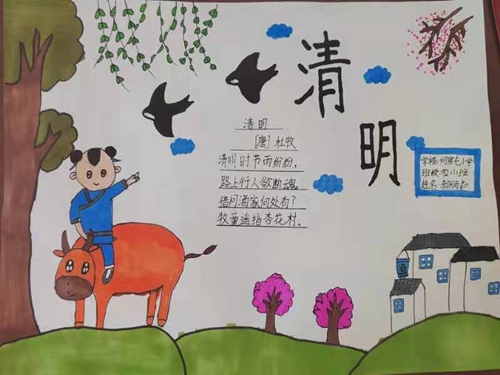 清明
清明
[唐] 杜牧
清明时节雨纷纷，
路上行人欲断魂。
借问酒家何处有？
牧童遥指杏花村。
学校:
班级:
姓名: